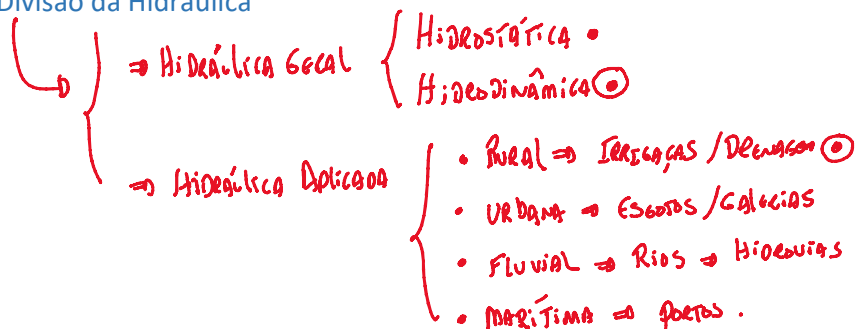 Divisão da Hidráulica
⇒ HIDRÁULICA GERAL
HIDROSTÁTICA •
HIDRODINÂMICA
⇒ HIDRÁULICA APLICADA
• RURAL ⇒ IRRIGAÇÃS / DRENAGEM
• URBANA ⇒ ESGOTOS / GALERIAS
• FLUVIAL ⇒ RIOS ⇒ HIDROVIAS
• MARÍTIMA ⇒ PORTOS .